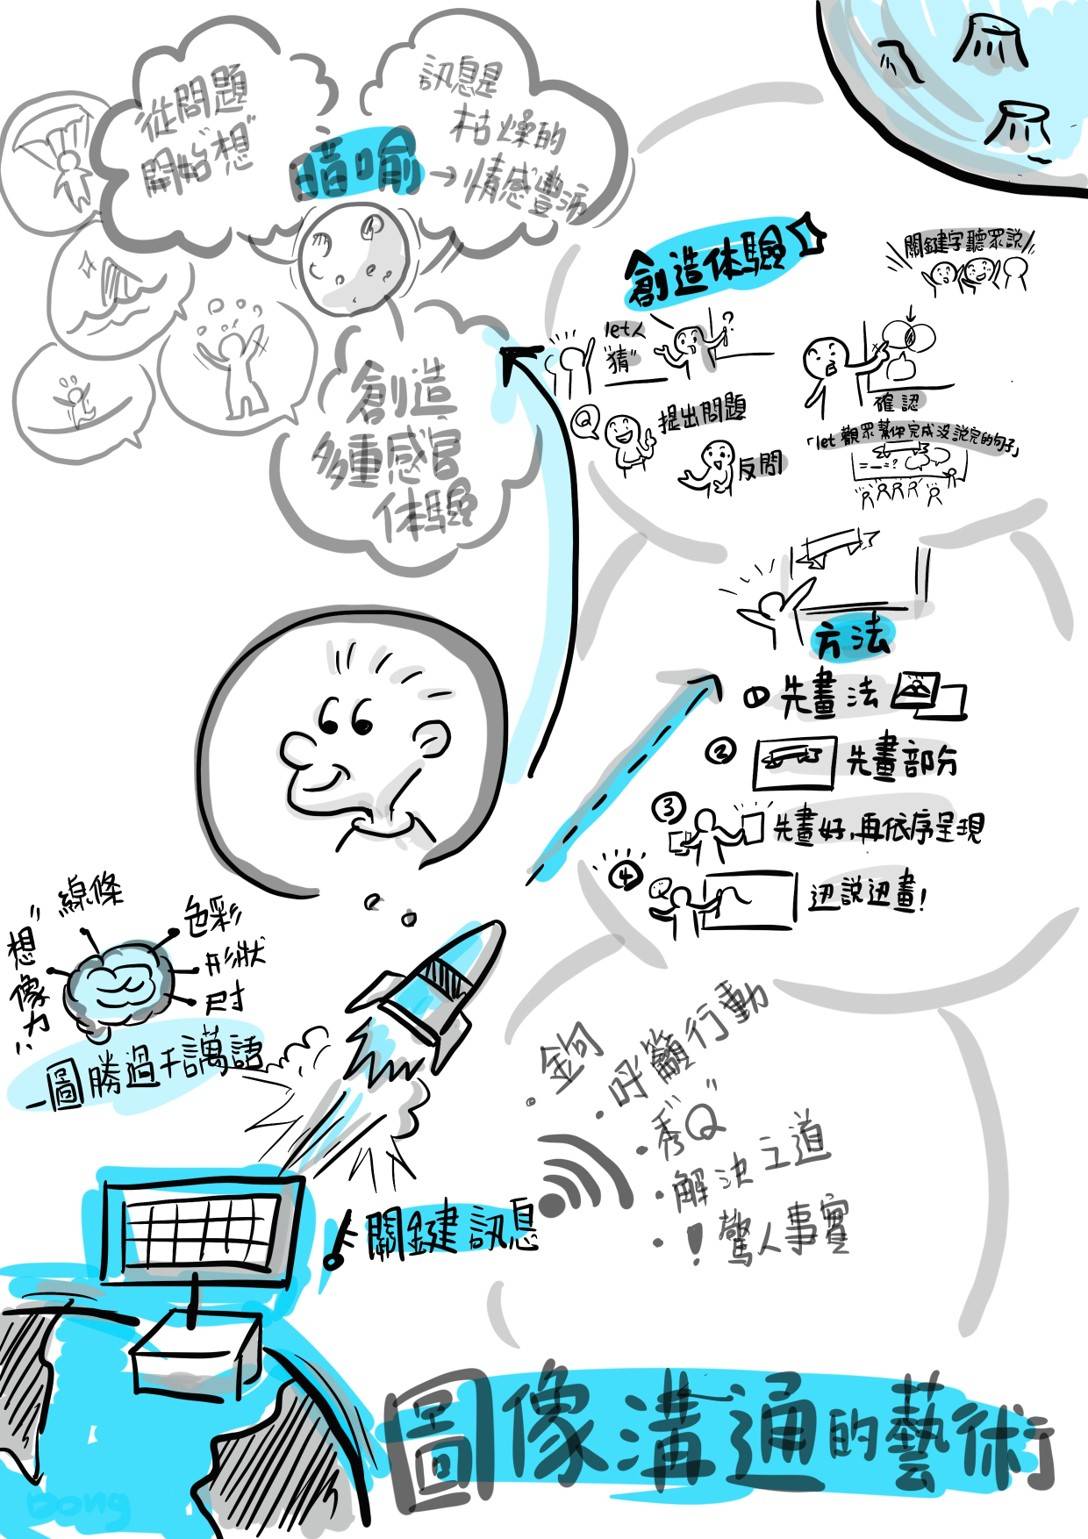 從問題
開始"想"
訊息是
枯燥的
→情感豐沛
暗喻
創造
多重感官
体驗
創造体驗
關鍵字聽眾說
let人
"猜"
Q
提出問題
反問
確認
「let 觀眾幫你完成沒說完的句子」
方法
① 先畫法
② 先畫部分
③ 先畫好、再依序呈現
④ 边說边畫!
Q
"想像力"
線條
色彩
形狀
尺寸
一圖勝過千萬語
關鍵訊息
· 鉤
· 呼籲行動
· 秀"Q"
· 解決之道
· ! 驚人事實
圖像溝通的藝術
Dong